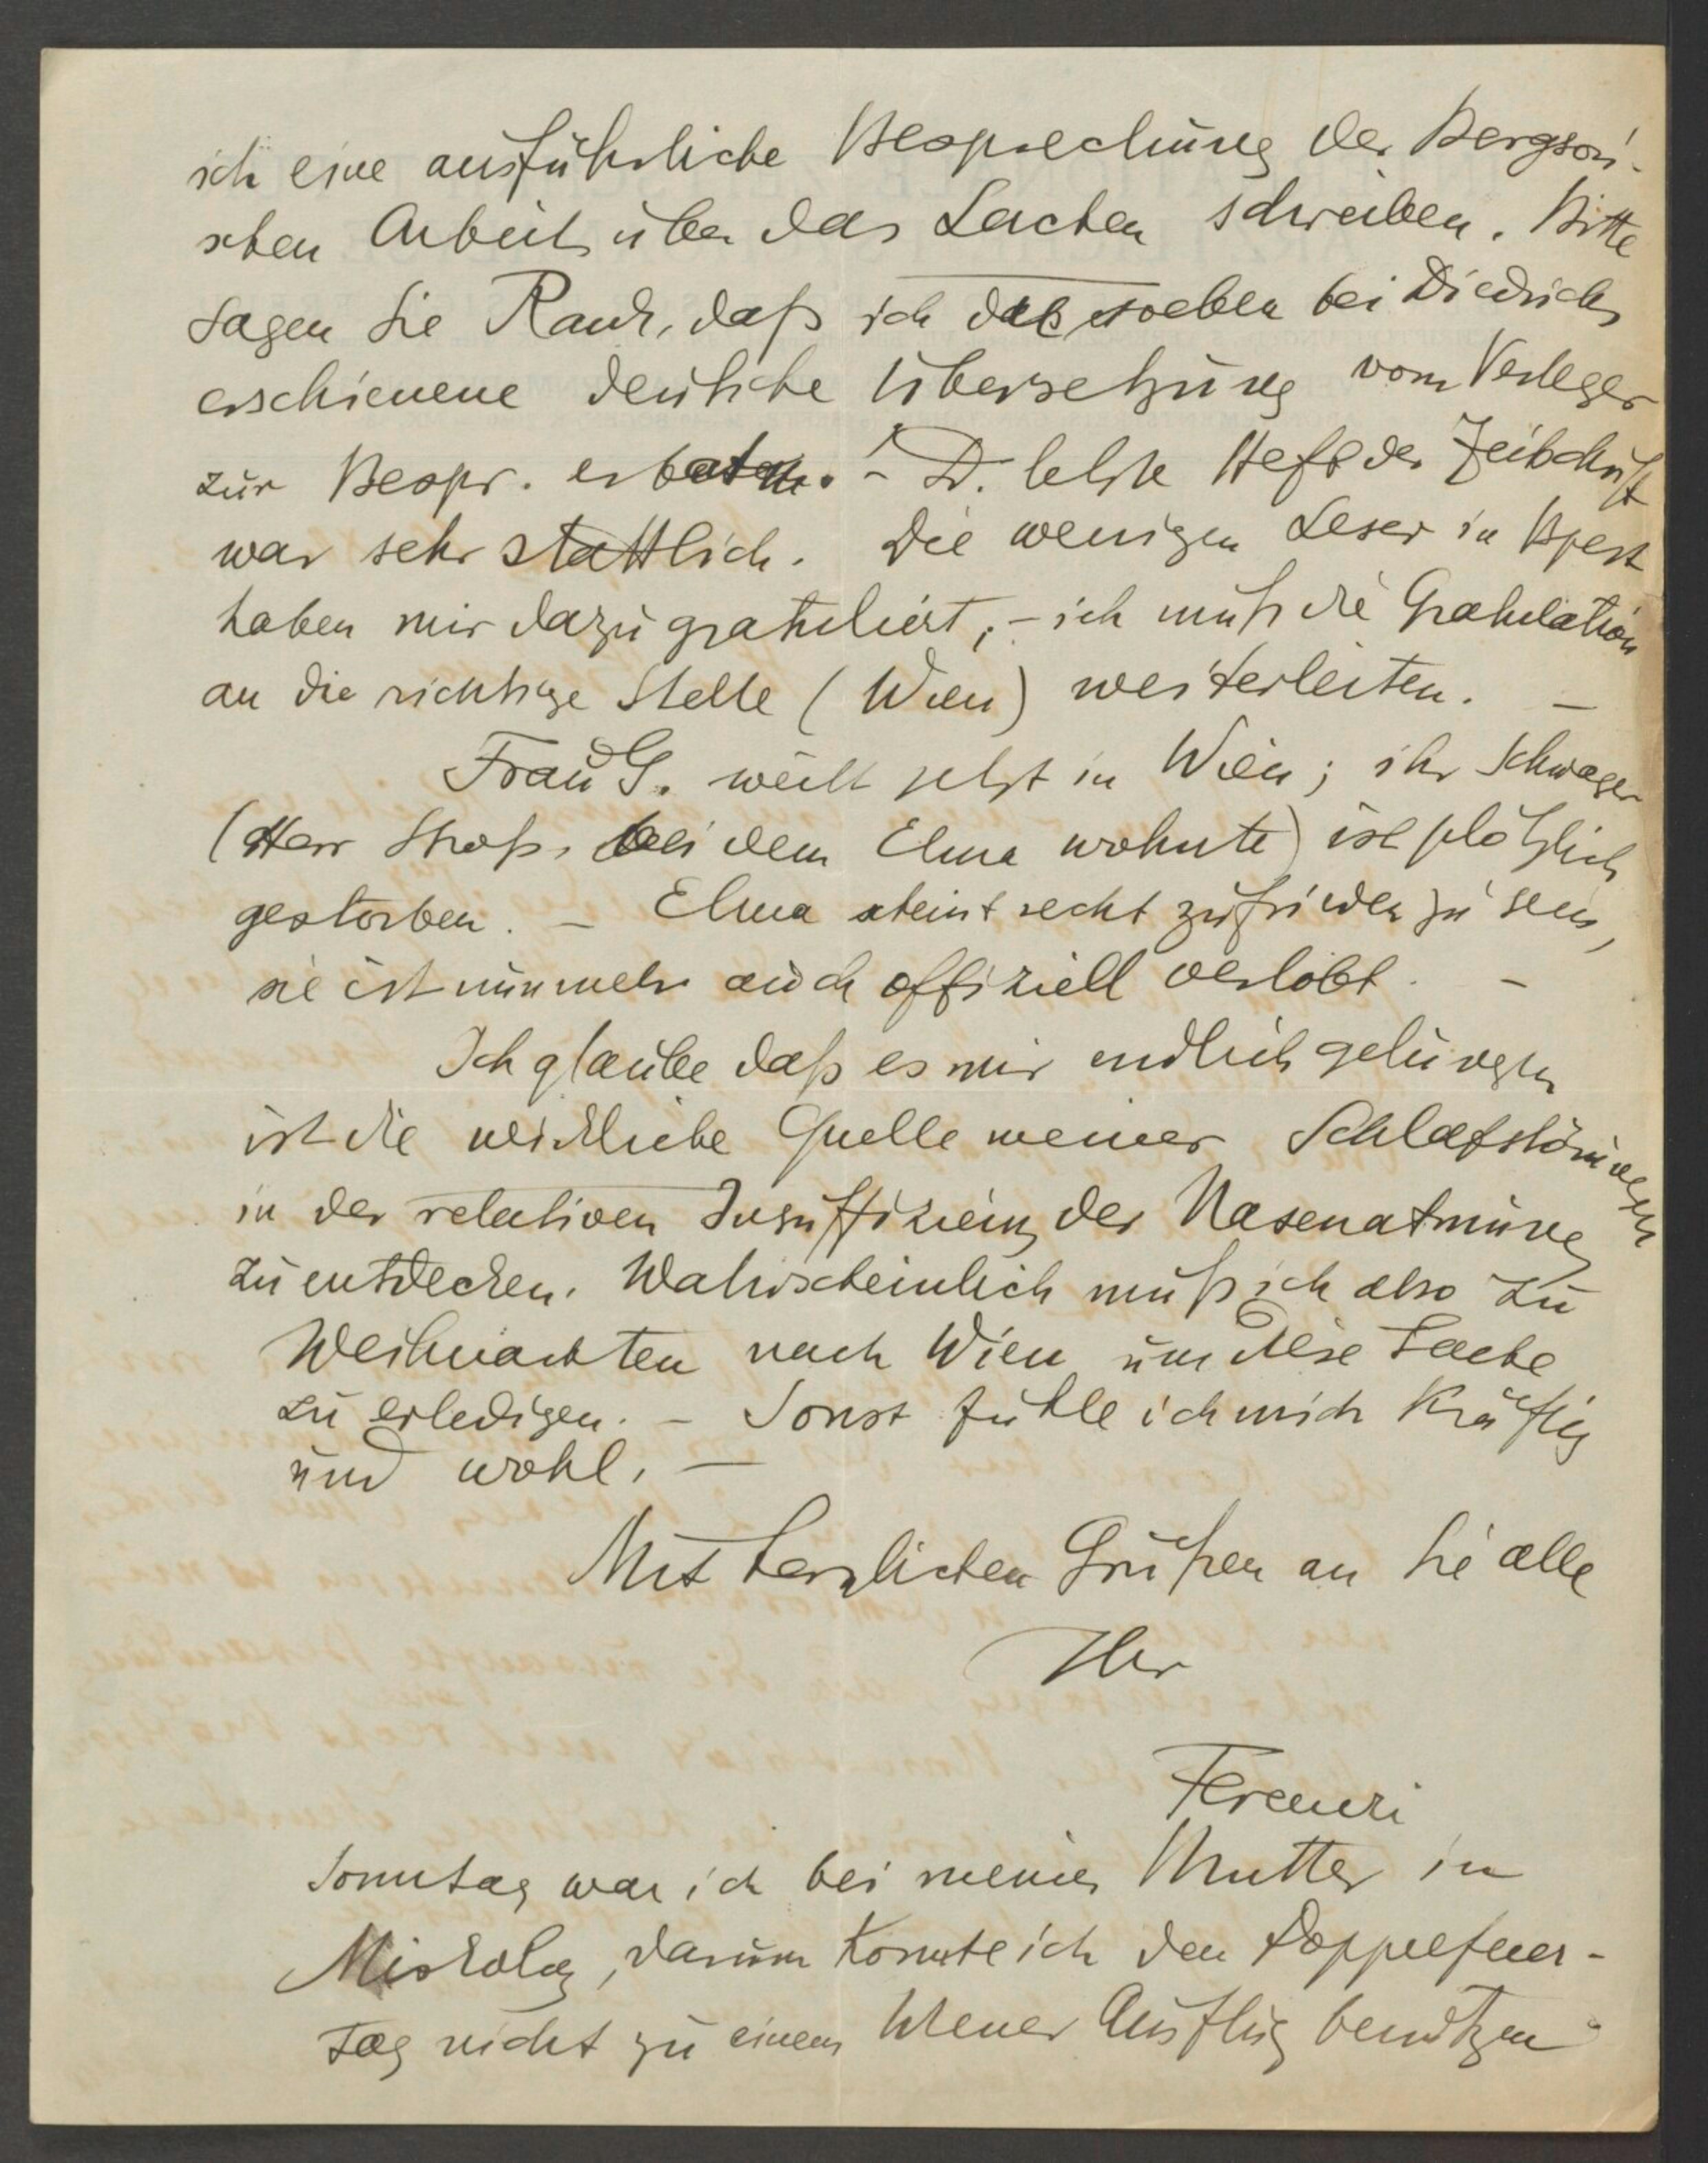 ich eine ausführliche Besprechung der Bergson'-
schen Arbeit über das Lachen schreiben. Bitte
sagen Sie Rank, daß ich das soeben bei Diedrichs
erschienene deutsche Übersetzung vom Verleger
zur Bespr. erbeten. - D. letzte Heft der Zeitschrift
war sehr stattlich. Die wenigen Leser in Bpest
haben mir dazu gratuliert, - ich muß die Gratulation
an die richtige Stelle (Wien) weiterleiten. -
Frau G. weilt jetzt in Wien; ihr Schwager
(Herr Stroß, bei dem Elma wohnte) ist plötzlich
gestorben. - Elma scheint recht zufrieden zu sein,
sie ist nunmehr auch offiziell verlobt. -
Ich glaube daß es mir endlich gelungen
ist die wirkliche Quelle meiner Schlafstörungen
in der relativen Insuffizienz der Nasenatmung
zu entdecken. Wahrscheinlich muß ich also zu
Weihnachten nach Wien um diese Sache
zu erledigen. - Sonst fühle ich mich kräftig
und wohl. -
Mit herzlichen Grüßen an Sie alle
Ihr
Ferenczi
Sonntag war ich bei meiner Mutter in
Miskolcz, darum konnte ich den Doppelfeier-
tag nicht zu einem Wiener Ausflug benützen.